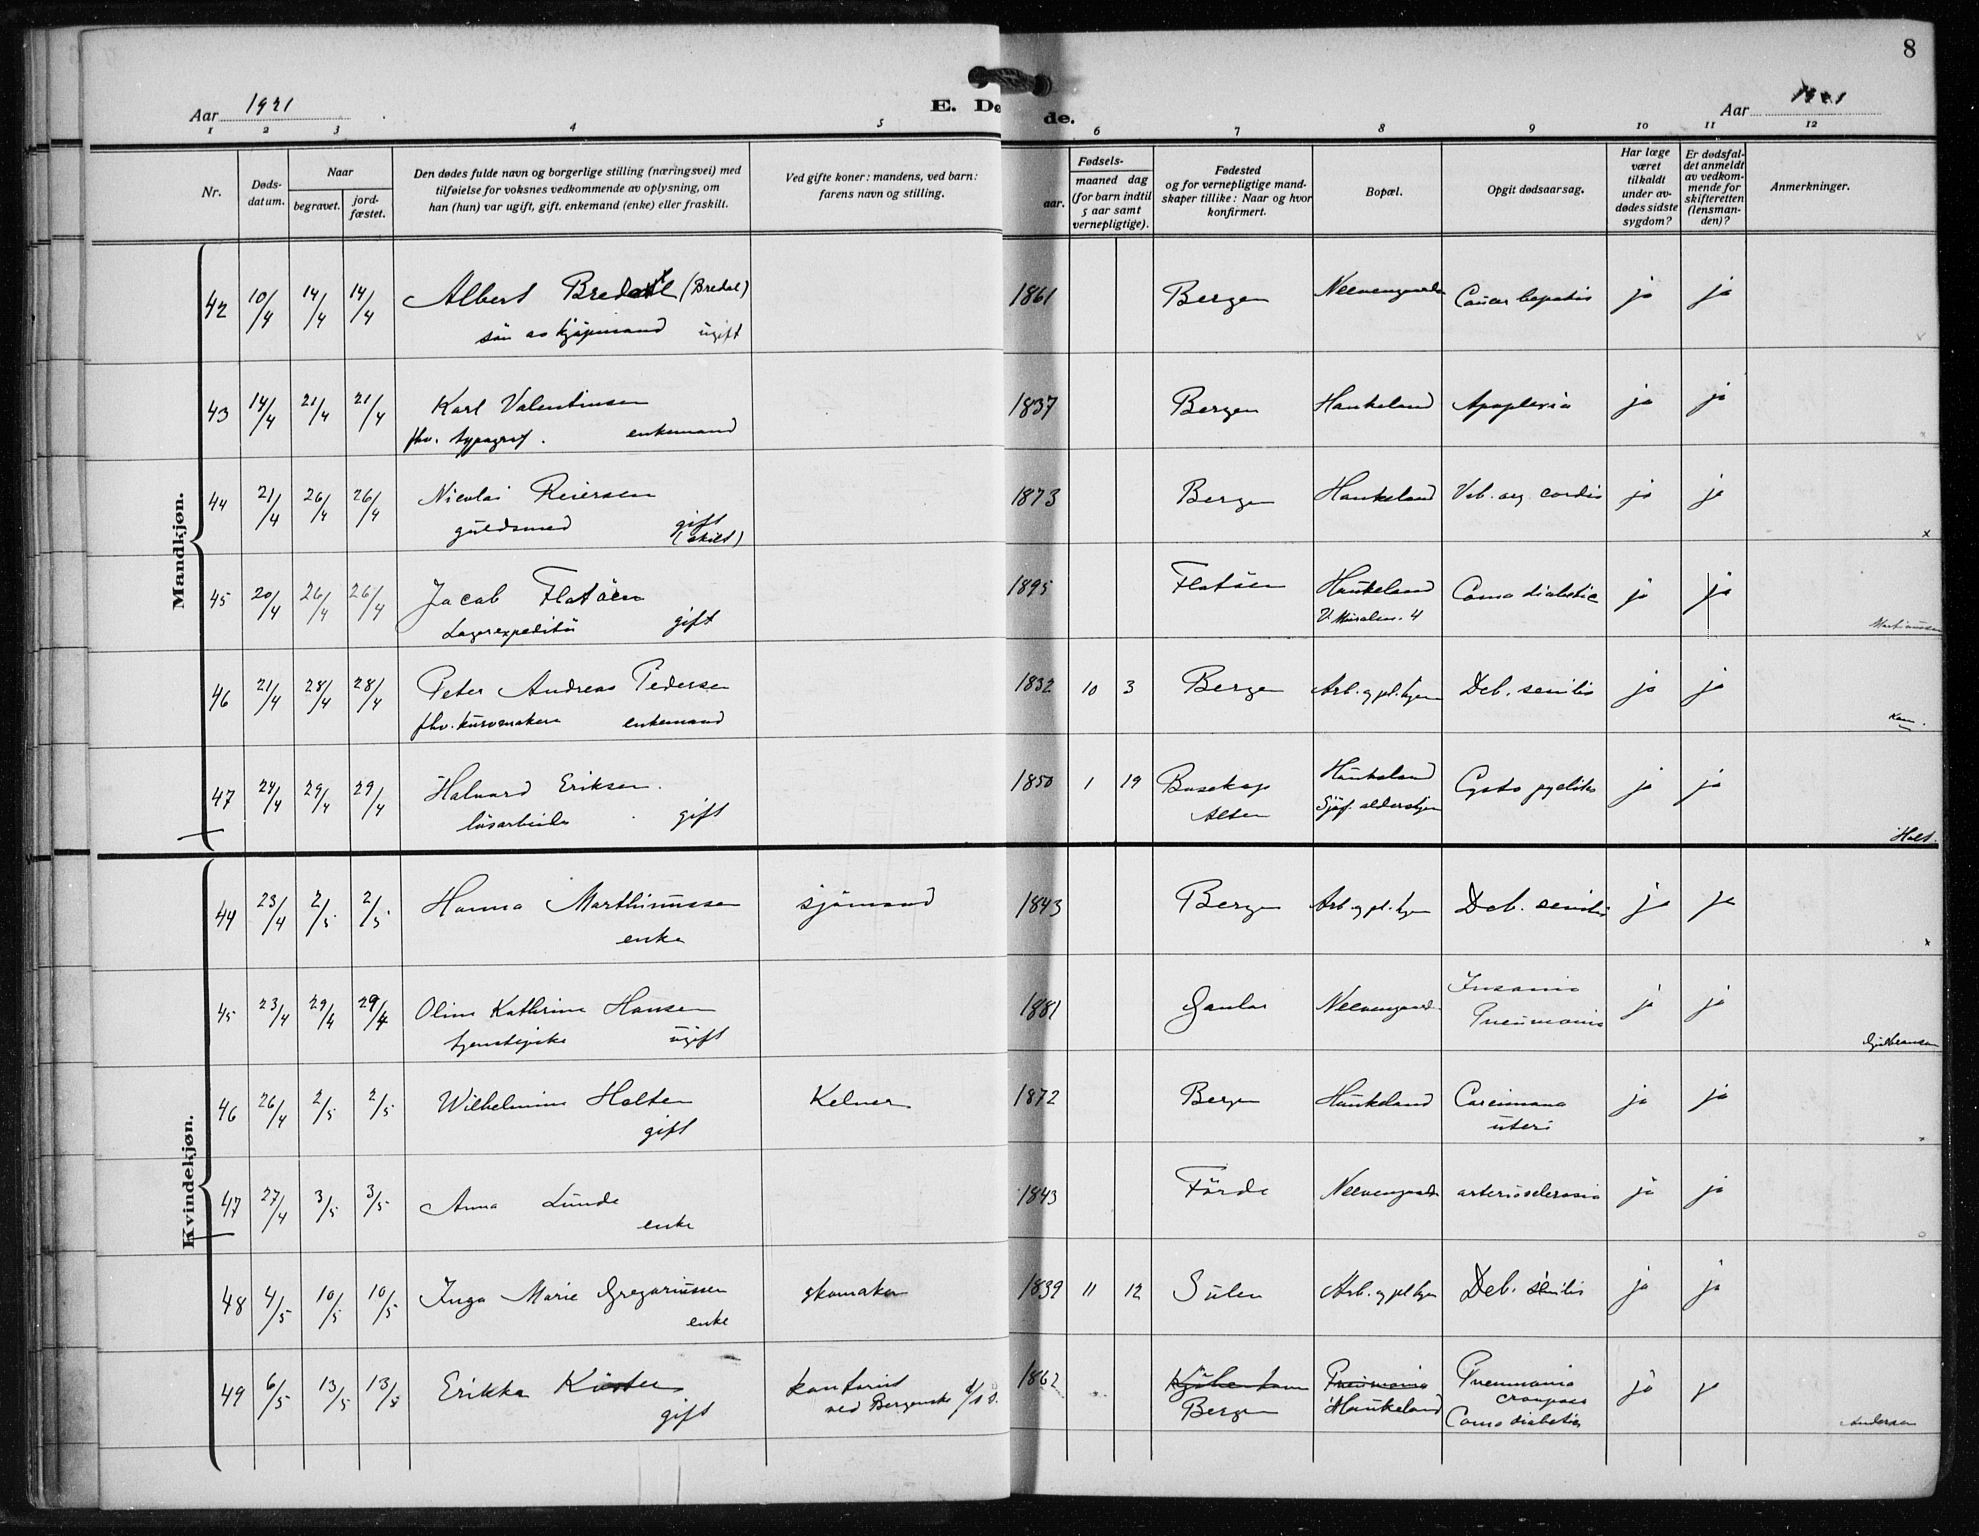 8
Aar 1921
E. Døde.
Aar 1921
1 2 3 4 5 6 7 8 9 10 11 12
Nr.
Døds-
datum.
Naar
begravet.
jord-
fæstet.
Den dødes fulde navn og borgerlige stilling (næringsvei) med
tilføielse for voksnes vedkommende av oplysning, om
han (hun) var ugift, gift. enkemand (enke) eller fraskilt.
Ved gifte koner: mandens, ved barn:
farens navn og stilling.
Fødsels-
aar.
maaned dag
(for barn indtil
5 aar samt
vernepligtige).
Fødested
og for vernepligtige mand-
skaper tillike: Naar og hvor
konfirmert.
Bopæl.
Opgit dødsaarsag.
Har læge
været
tilkaldt
under av-
dødes sidste
sygdom?
Er dødsfal-
det anmeldt
av vedkom-
mende for
skifteretten
(lensman-
den)?
Anmerkninger.
Mandkjøn.
42 10/4 14/4 14/4 Albert (Bredal) 1861 Bergen Neevengaarden Cancer hepatis ja ja
søn av kjøpmand ugift
43 14/4 21/4 21/4 Karl Valentinsen 1837 Bergen Haukeland Apoplexia ja ja
fhv. typograf. enkemand
44 21/4 26/4 26/4 Nicolai Reiersen 1873 Bergen Haukeland Vib. org. cordis ja ja
guldsmed gift
(skilt) x
45 20/4 26/4 26/4 Jacob Flatöen 1895 Flatöen Haukeland Coma diabetic ja ja
Lagerexpeditör gift V. Muralm. 4 Martinussen
46 21/4 28/4 28/4 Peter Andreas Pedersen 1832 10 3 Bergen Arb. og pl. hjem Deb. senilis ja ja
fhv. kurvmaker enkemand
47 24/4 29/4 29/4 Halvard Eriksen. 1850 1 19 Bosekop Haukeland Cysto pyelitis ja ja
løsarbeider gift Alten Sjöf. aldershjem Holt.
Kvindekjøn.
44 23/4 2/5 2/5 Hanna Marthinussen sjömand 1843 Bergen Arb. og pl. hjem Deb. senilis ja ja
enke x
45 23/4 29/4 29/4 Olina Kathrine Hansen 1881 Gaular Neevengaarden Insania ja ja
tjenestepike ugift Pneumonia Gulbransen
46 26/4 2/5 2/5 Wilhelmine Holten Kelner 1872 Bergen Haukeland Carcinoma ja ja
gift uteri
47 27/4 3/5 3/5 Anna Lunde 1843 Förde Neevengaarden arteriosclerosis ja ja
enke
48 4/5 10/5 10/5 Inga Marie Gregoriussen skomaker 1839 11 12 Sulen Arb. og pl hjem Deb. senilis ja ja
enke
49 6/5 13/5 13/5 Erikka Köster kontorist 1862 Kjöbenhavn Pneumonia Pneumonia ja ja
gift ved Bergenske d/s s. Bergen Haukeland crouposa
Coma diabetic Andersen